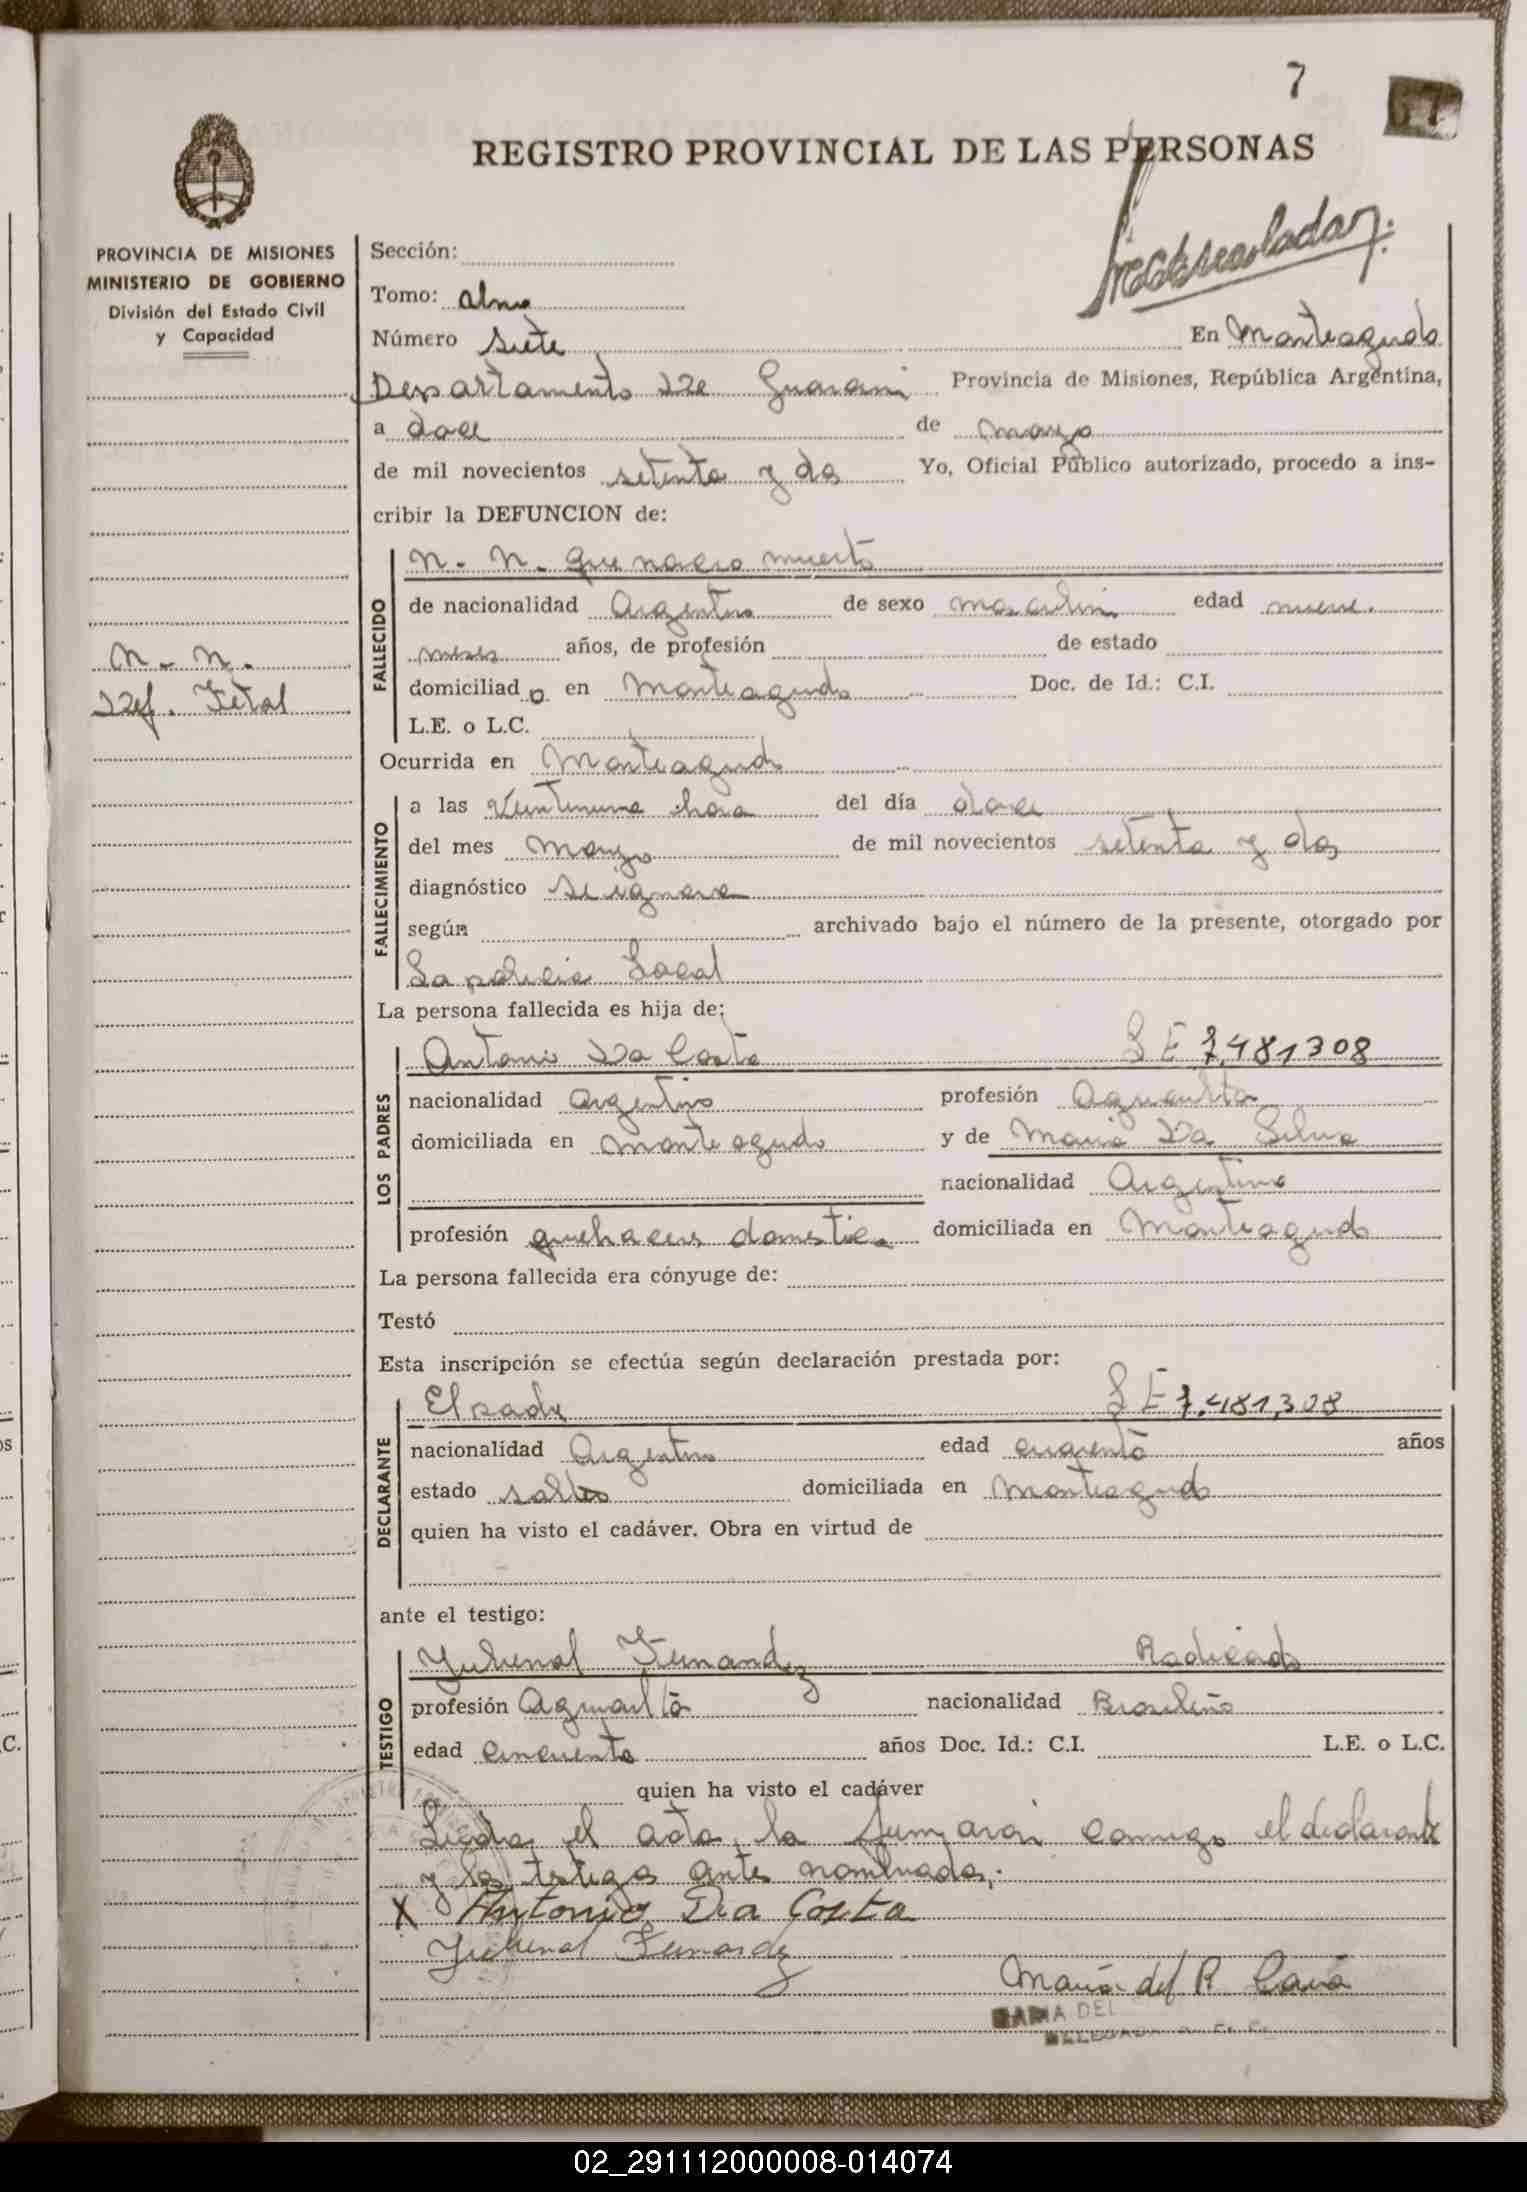 7
REGISTRO PROVINCIAL DE LAS PERSONAS
PROVINCIA DE MISIONES
MINISTERIO DE GOBIERNO
División del Estado Civil
y Capacidad
Sección:
Tomo:
Número Siete En Monteagudo
Departamento De Guarani Provincia de Misiones, República Argentina,
a doce de marzo
de mil novecientos setenta y dos Yo, Oficial Público autorizado, procedo a ins-
cribir la DEFUNCION de:
N. N. que nacio muerto
FALLECIDO
de nacionalidad Argentino de sexo masculino edad nueve
meses años, de profesión de estado
domiciliado en Monteagudo Doc. de Id.: C.I.
L.E. o L.C.
N. N.
Def. Fetal
Ocurrida en Monteagudo
FALLECIMIENTO
a las Veintiuna hora del día doce
del mes Marzo de mil novecientos setenta y dos
diagnóstico se ignora
según archivado bajo el número de la presente, otorgado por
La policia Local
La persona fallecida es hija de:
LOS PADRES
Antonio Da Costa L E 7.481308
nacionalidad Argentino profesión Agricultor
domiciliada en Monteagudo y de Maria Da Silva
nacionalidad Argentina
profesión quehaceres domestico domiciliada en Monteagudo
La persona fallecida era cónyuge de:
Testó
Esta inscripción se efectúa según declaración prestada por:
DECLARANTE
El padre L E 7.481,308
nacionalidad Argentino edad cuarenta años
estado soltero domiciliada en Monteagudo
quien ha visto el cadáver. Obra en virtud de
ante el testigo:
TESTIGO
Yubenal Fernandez Radicado
profesión Agricultor nacionalidad Brasileño
edad cincuenta años Doc. Id.: C.I. L.E. o L.C.
quien ha visto el cadáver
Leida el acta, la firmaron conmigo el declarante
y los testigos antes nombrados,.
X Antonio Da Costa
Yubenal Fernandez
María del R.
MARIA DEL
02_291112000008-014074